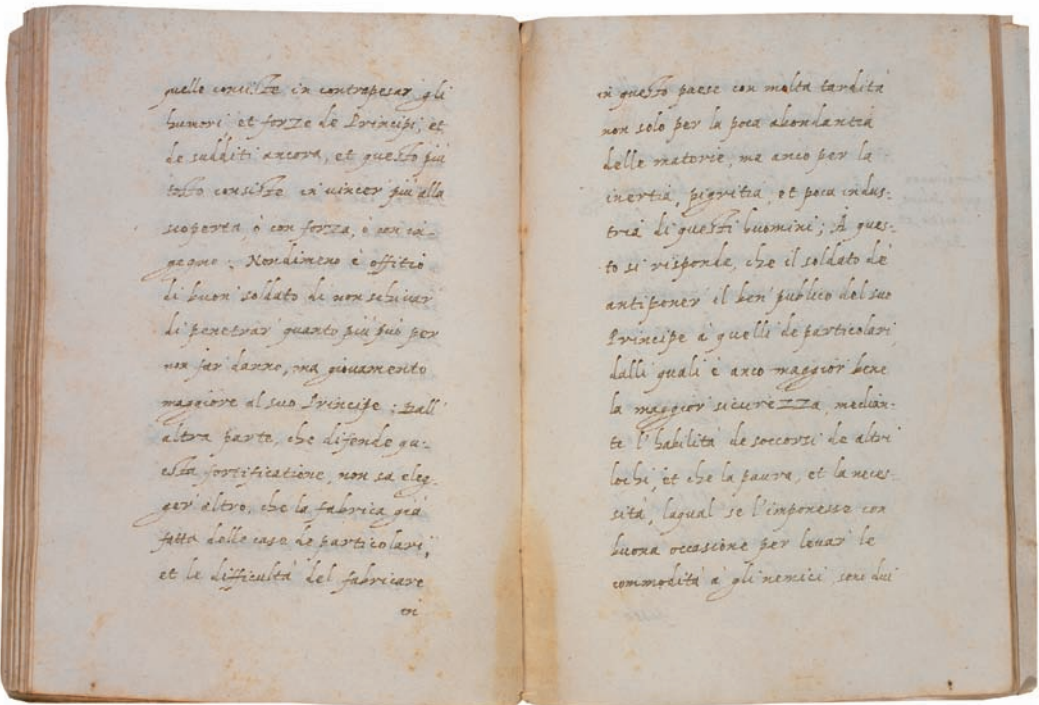 quello consiste in contrapesar gli
humori et forze de Principi, et
de sudditi ancora, et questo più
tosto consiste in vincer più alla
scoperta, ò con forza, ò con in-
gegno: Nondimeno è offitio
di buon' soldato di non schivar
di penetrar' quanto più può per
non far danno, ma giovamento
maggiore al suo Principe; Dall'
altra parte, che difende qu-
esta fortificatione, non sa eleg-
ger altro, che la fabrica già
fatta delle case de particolari,
et le difficultà del fabricare
in
in questo paese con molta tardità
non solo per la poca abondantia
delle materie, ma anco per la
inertia, pigritia, et poca indus-
tria di questi huomini; A ques-
to si risponde, che il soldato de
antiponer il ben' publico del suo
Principe à quelli de particolari,
dalli quali è anco maggior bene
la maggior sicurezza, median-
te l'habilità de soccorsi de altri
lochi, et che la paura, et la neces-
sità, laqual se l'imponesse con
buona occasione per levar le
commodità à gli nemici, sono dui